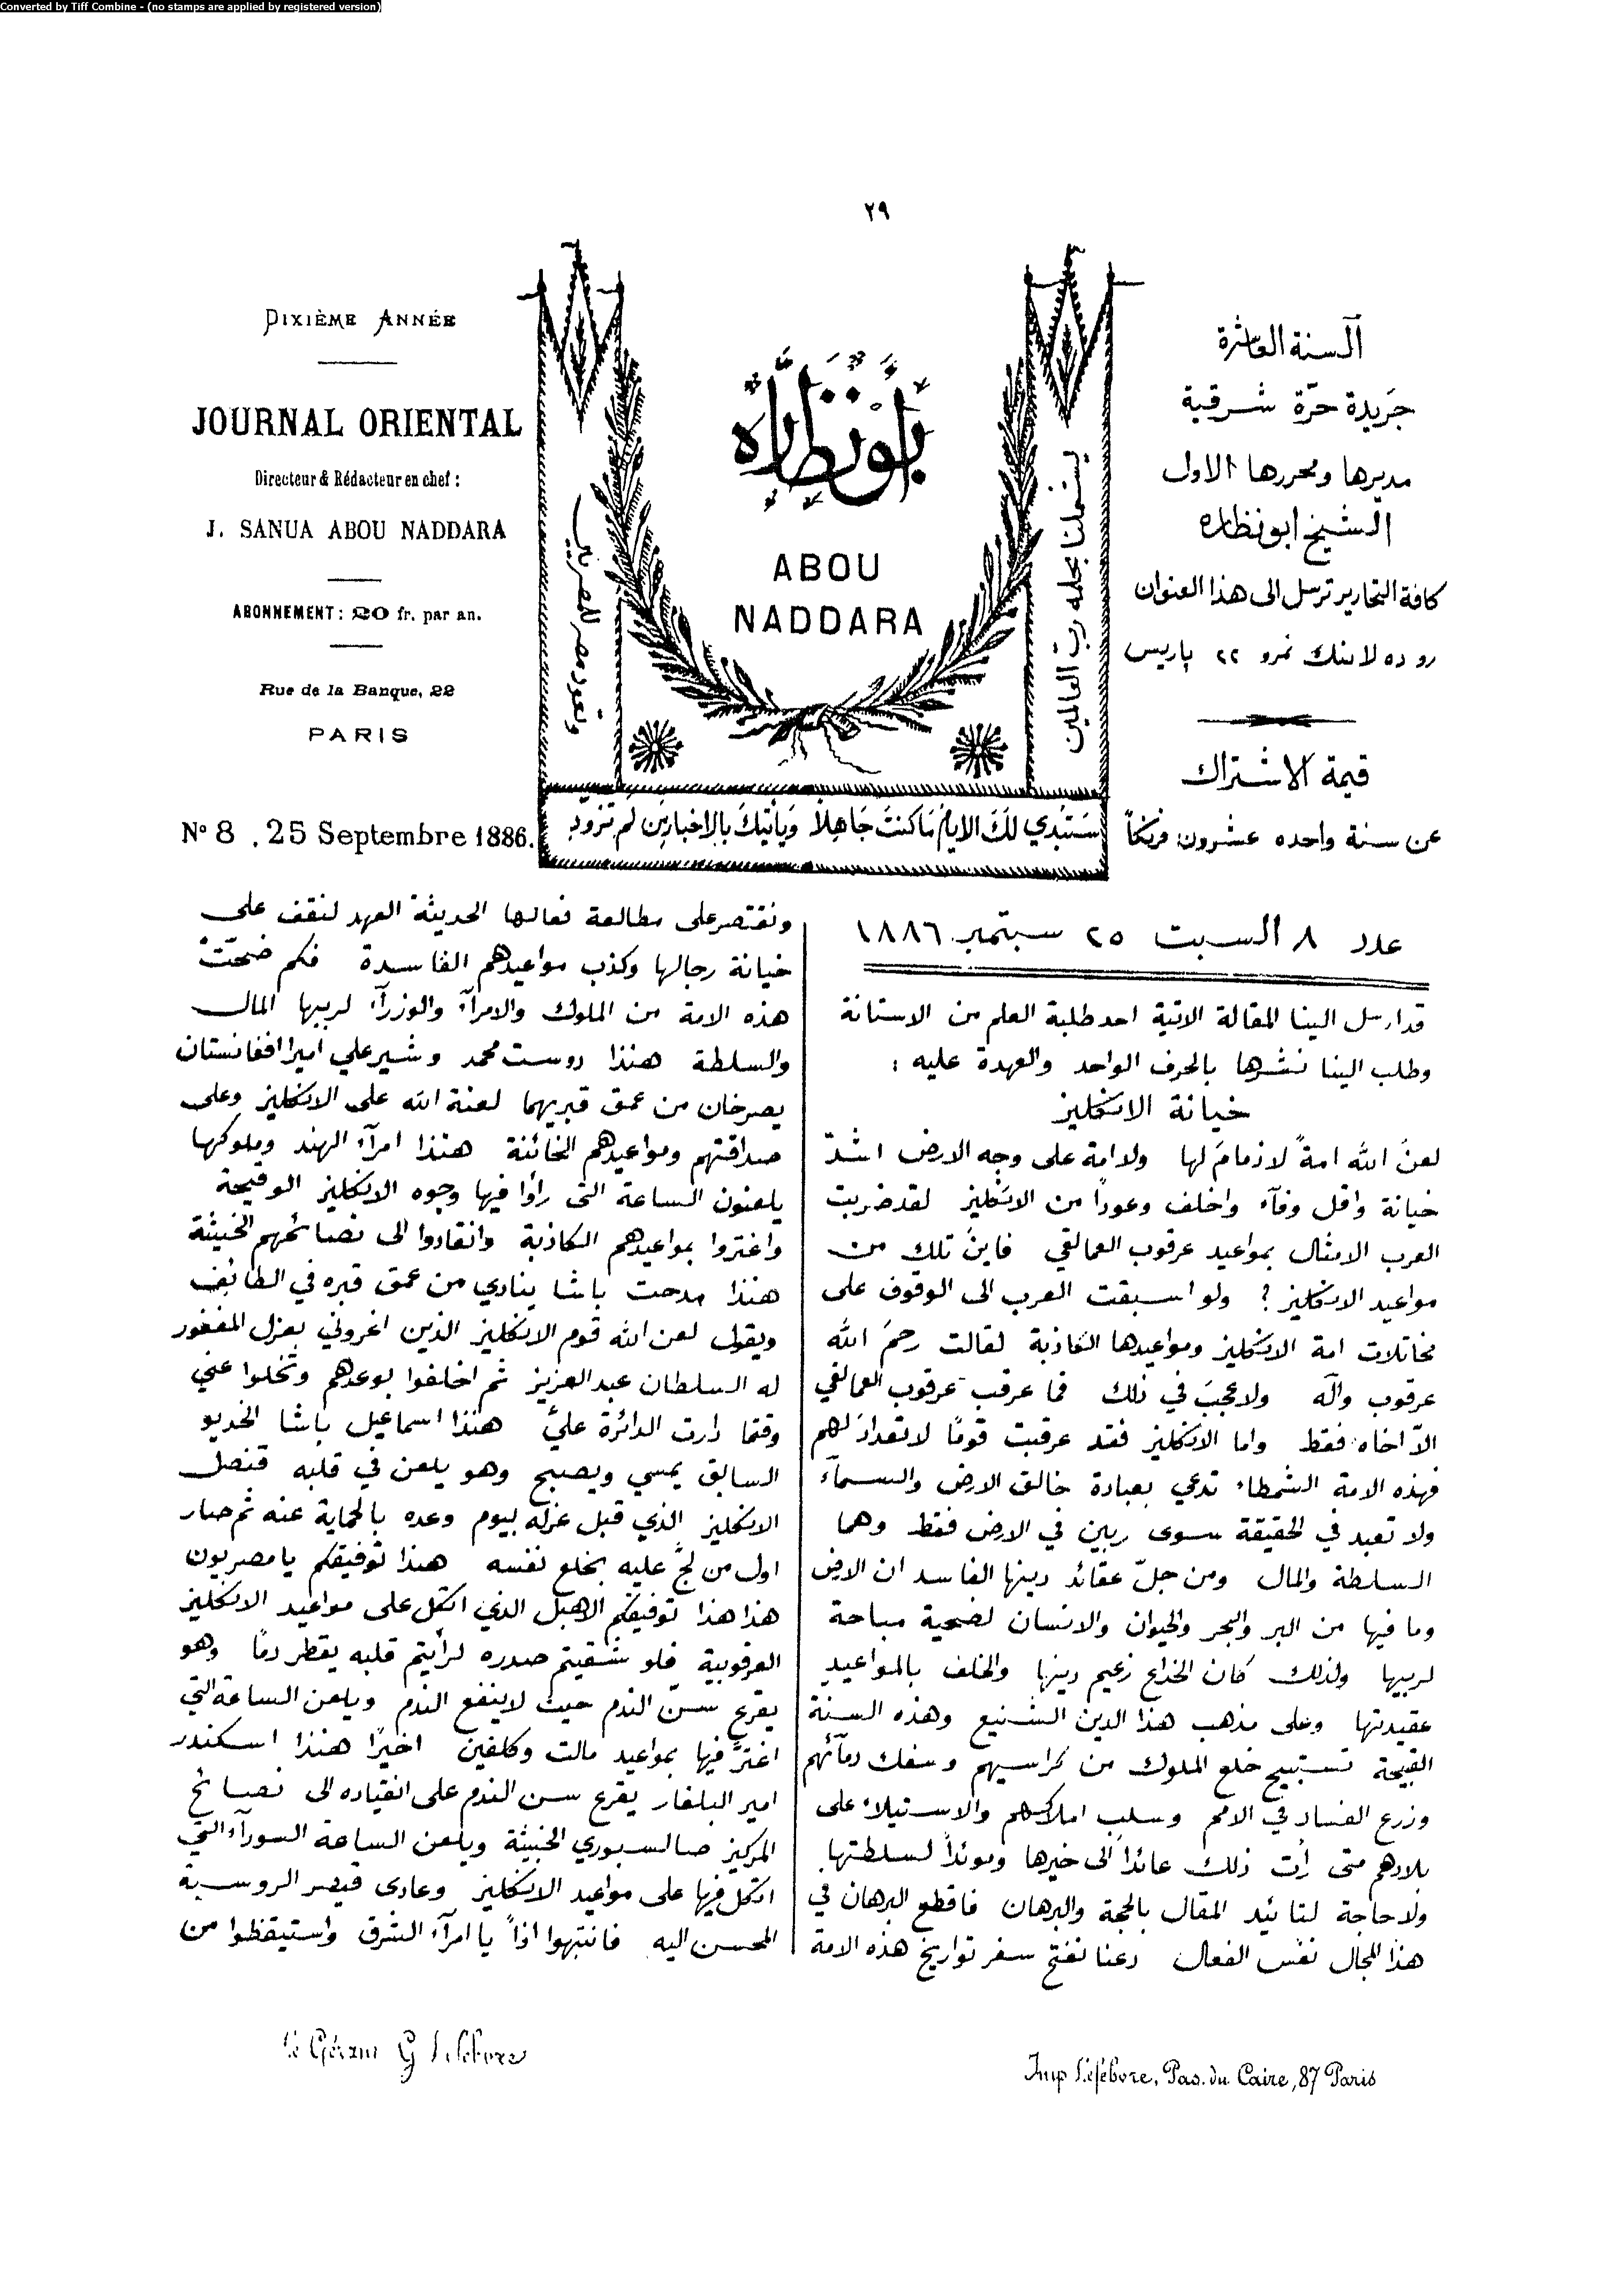 Converted by Tiff Combine - (no stamps are applied by registered version)
٢٩
DIXIÈME ANNÉE
JOURNAL ORIENTAL
Directeur & Rédacteur en chef :
J. SANUA ABOU NADDARA
ABONNEMENT : 20 fr. par an.
Rue de la Banque, 22
PARIS
Nº 8 . 25 Septembre 1886.
ابونظاره
ABOU
NADDARA
يشملنا بحلمه رب العالمين
وتعود مصر للمصريين
ستبدي لك الايام ما كنت جاهلا وياتيك بالاخبار من لم تزود
السنة العاشرة
جريدة حرّة شرقية
مديرها ومحررها الاول
الشيخ ابونظاره
كافة التحارير ترسل الى هذا العنوان
رو ده لا بنك نمرو ٢٢ پاريس
قيمة الاشتراك
عن سنة واحده عشرون فرنكاً
عدد ٨ السبت ٢٥ سبتمبر ١٨٨٦
قد ارسل الينا المقالة الاتية احد طلبة العلم من الاستانة
وطلب الينا نشرها بالحرف الواحد والعهدة عليه :
خيانة الانكليز
لعن الله امةً لا ذمام لها ولا امة على وجه الارض اشدّ
خيانة واقل وفآء واخلف وعوداً من الانكليز لقد ضربت
العرب الامثال بمواعيد عرقوب العمالقي فاين تلك من
مواعيد الانكليز ؟ ولو اسبقت العرب الى الوقوف على
مخاتلات امة الانكليز ومواعيدها الكاذبة لقالت رحم الله
عرقوب وآله ولا عجب في ذلك فما عرقب عرقوب العمالقي
الاّ اخاه فقط واما الانكليز فقد عرقبت قومًا لا تعداد لهم
فهذه الامة الشمطاء تدعي بعبادة خالق الارض والسمآء
ولا تعبد في الحقيقة سوى ربين في الارض فقط وهما
السلطة والمال ومن جلّ عقائد دينها الفاسد ان الارض
وما فيها من البر والبحر والحيوان والانسان لضحية مباحة
لربيها ولذلك كان الخداع زعيم دينها والخلف بالمواعيد
عقيدتها وعلى مذهب هذا الدين الشنيع وهذه السنة
القبيحة تستبيح خلع الملوك من كراسيهم وسفك دمآئهم
وزرع الفساد في الامم وسلب املاكهم والاستيلاء على
بلادهم متى رأت ذلك عائداً الى خيرها وموئداً لسلطتها.
ولا حاجة لتائيد المقال بالحجة والبرهان فاقطع البرهان في
هذا المجال نفس الفعال دعنا نفتح سفر تواريخ هذه الامة
ونقتصر على مطالعة فعالها الحديثة العهد لنقف على
خيانة رجالها وكذب مواعيدهم الفاسدة فكم ضحّت
هذه الامة من الملوك والامرآء والوزرآء لربيها المال
والسلطة هنذا دوست محمد وشير علي اميرا افغانستان
يصرخان من عمق قبريهما لعنة الله على الانكليز وعلى
صداقتهم ومواعيدهم الخائنة هنذا امرآء الهند وملوكها
يلعنون الساعة التى رأوا فيها وجوه الانكليز الوقيحة
واغتروا بمواعيدهم الكاذبة وانقادوا الى نصائحهم الخبيثة
هنذا مدحت باشا ينادي من عمق قبره في الطائف
ويقول لعن الله قوم الانكليز الذين اغروني بعزل المغفور
له السلطان عبد العزيز ثم اخلفوا بوعدهم وتخلوا عني
وقتما دارت الدائرة عليّ هنذا اسماعيل باشا الخديو
السابق يمسي ويصبح وهو يلعن في قلبه قنصل
الانكليز الذي قبل عزله بيوم وعده بالحماية عنه ثم صار
اول من لجّ عليه بخلع نفسه هنذا توفيقكم يا مصريون
هذا هذا توفيقكم الاهبل الذي اتكل على مواعيد الانكليز
العرقوبية فلو شقيتم صدره لرأيتم قلبه يقطر دمًا وهو
يقرع سنّ الندم حيث لا ينفع الندم ويلعن الساعة التي
اغترّ فيها بمواعيد مالت وكلفين اخيرًا هنذا اسكندر
امير البلغار يقرع سن الندم على انقياده الى نصائح
المركيز صالسبوري الخبيثة ويلعن الساعة السودآء التي
اتكل فيها على مواعيد الانكليز وعادى قيصر الروسية
المحسن اليه فانتبهوا اذاً يا امرآء الشرق واستيقظوا من
Le Gérant G Lefebvre
Imp Lefebvre, Pas. du Caire, 87 Paris